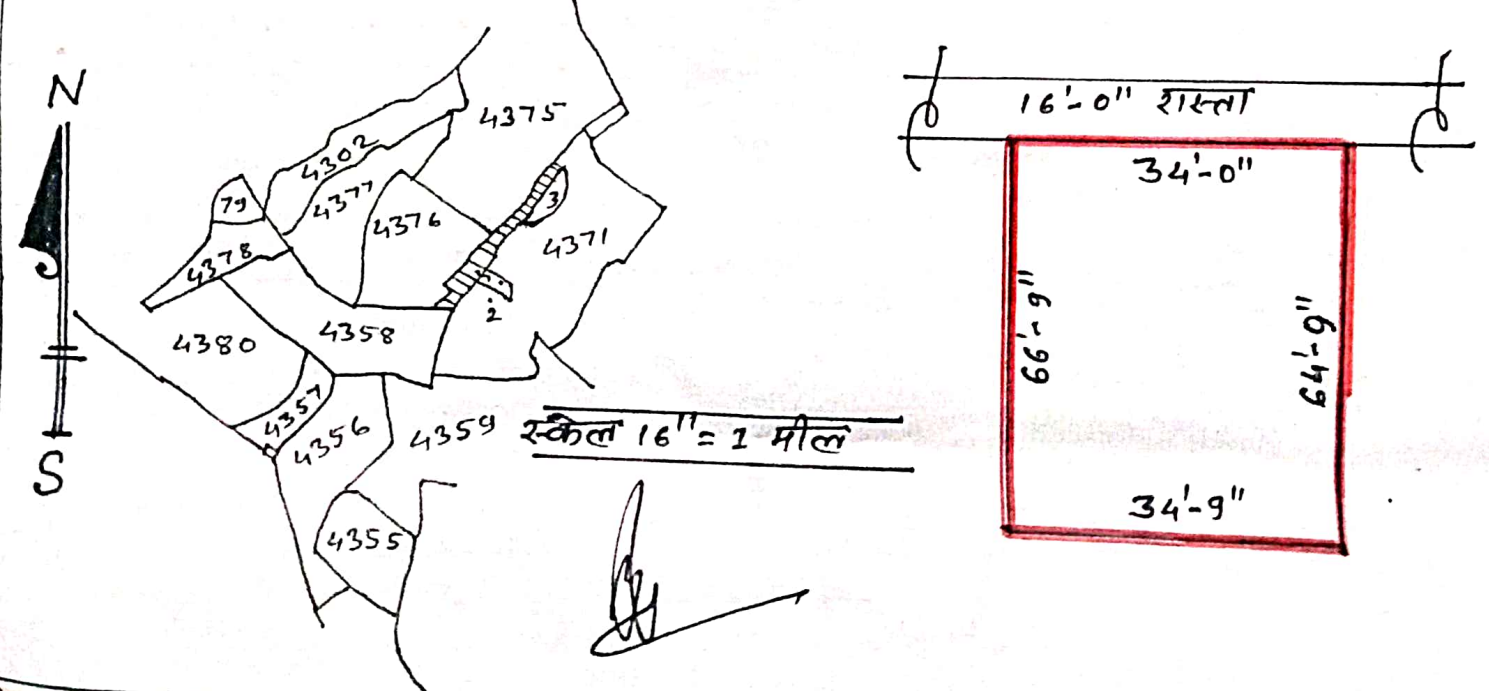 N
S
4375
4302
4377
79
4376
3
4371
4378
2
4358
4380
4357
4356
4359
4355
स्केल 16" = 1 मील
16'-0" रास्ता
34'-0"
66'-9"
64'-9"
34'-9"